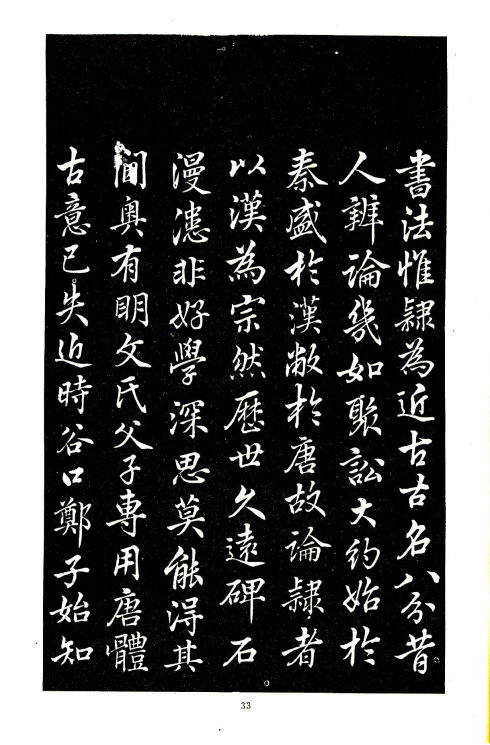 書法惟隸為近古古名八分昔
人辨論幾如聚訟大約始於
秦盛於漢敝於唐故論隸者
以漢為宗然歷世久遠碑石
漫漶非好學深思莫能得其
間奧有明文氏父子專用唐體
古意已失近時谷口鄭子始知
33